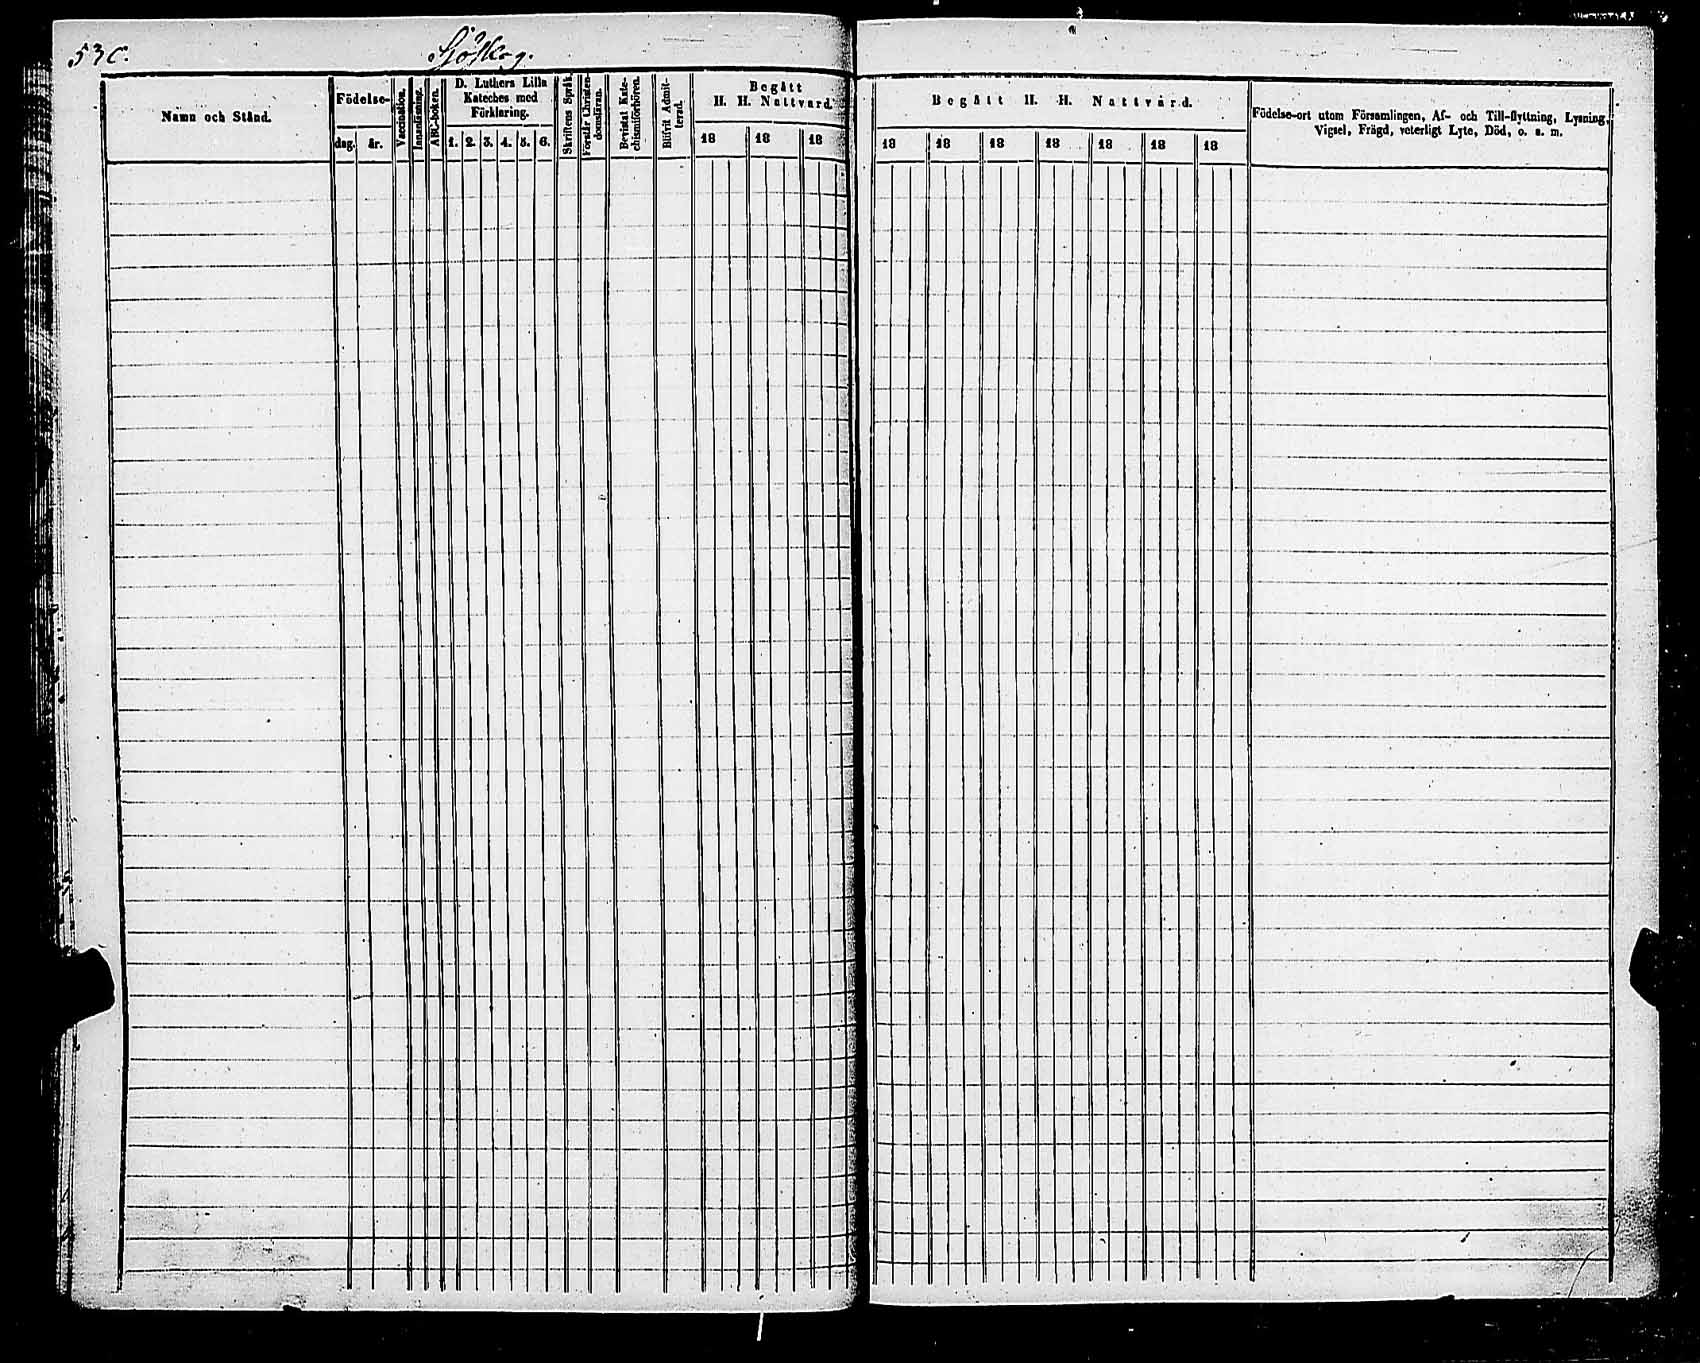 53c. Sjöskog.
Namn och Stånd.
Födelse-
dag. år.
Vaccination.
Innanläsning.
ABC-boken.
D. Luthers Lilla
Kateches med
Förklaring.
1. 2. 3. 4. 5. 6.
Skriftens Språk.
Förstår Christen-
domsläran.
Bevistat Kate-
chismiförhören.
Blifvit Admit-
terad.
Begått
H. H. Nattvard.
18 18 18
Begått H. H. Nattvard.
18 18 18 18 18 18 18
Födelse-ort utom Församlingen, Af- och Till-flyttning, Lysning,
Vigsel, Frägd, veterligt Lyte, Död, o. s. m.